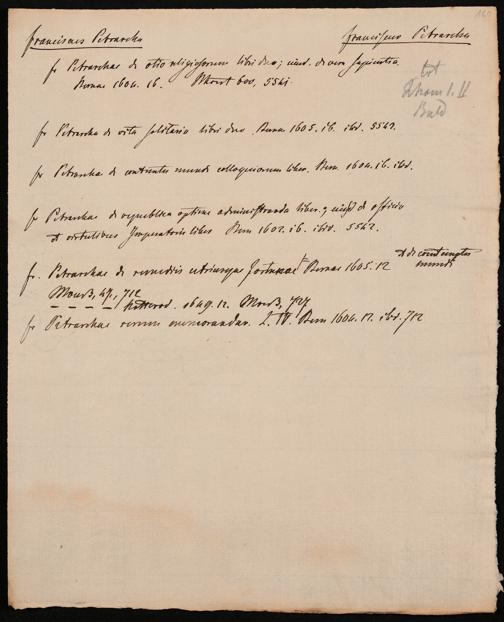 Franciscus Petrarcha Franciscus Petrarcha
fr Petrarchae de otio religiosorum libri duo; eiusd. de vera sapientia
Bernae 1604. 16. 600, 554i.
fr Petrarcha de vita solitaria libri duo Bernae 1605. 16. ibd. 5542.
fr Petrarcha de contemtu mundi colloquiorum liber. Bern 1604. 16. ibd.
fr Petrarcha de republica optime administranda liber; de officio
et virtutibus Imperatoris liber Bern 1602. 16. ibid. 5542.
fr. Petrarchae de remediis utriusque fortunae Bernae 1605. 12 et de contemptu mundi
712
1649. 12.
fr Petrarchae rerum memorandar. L. IV. Bern 1604. 12. ibd. 712